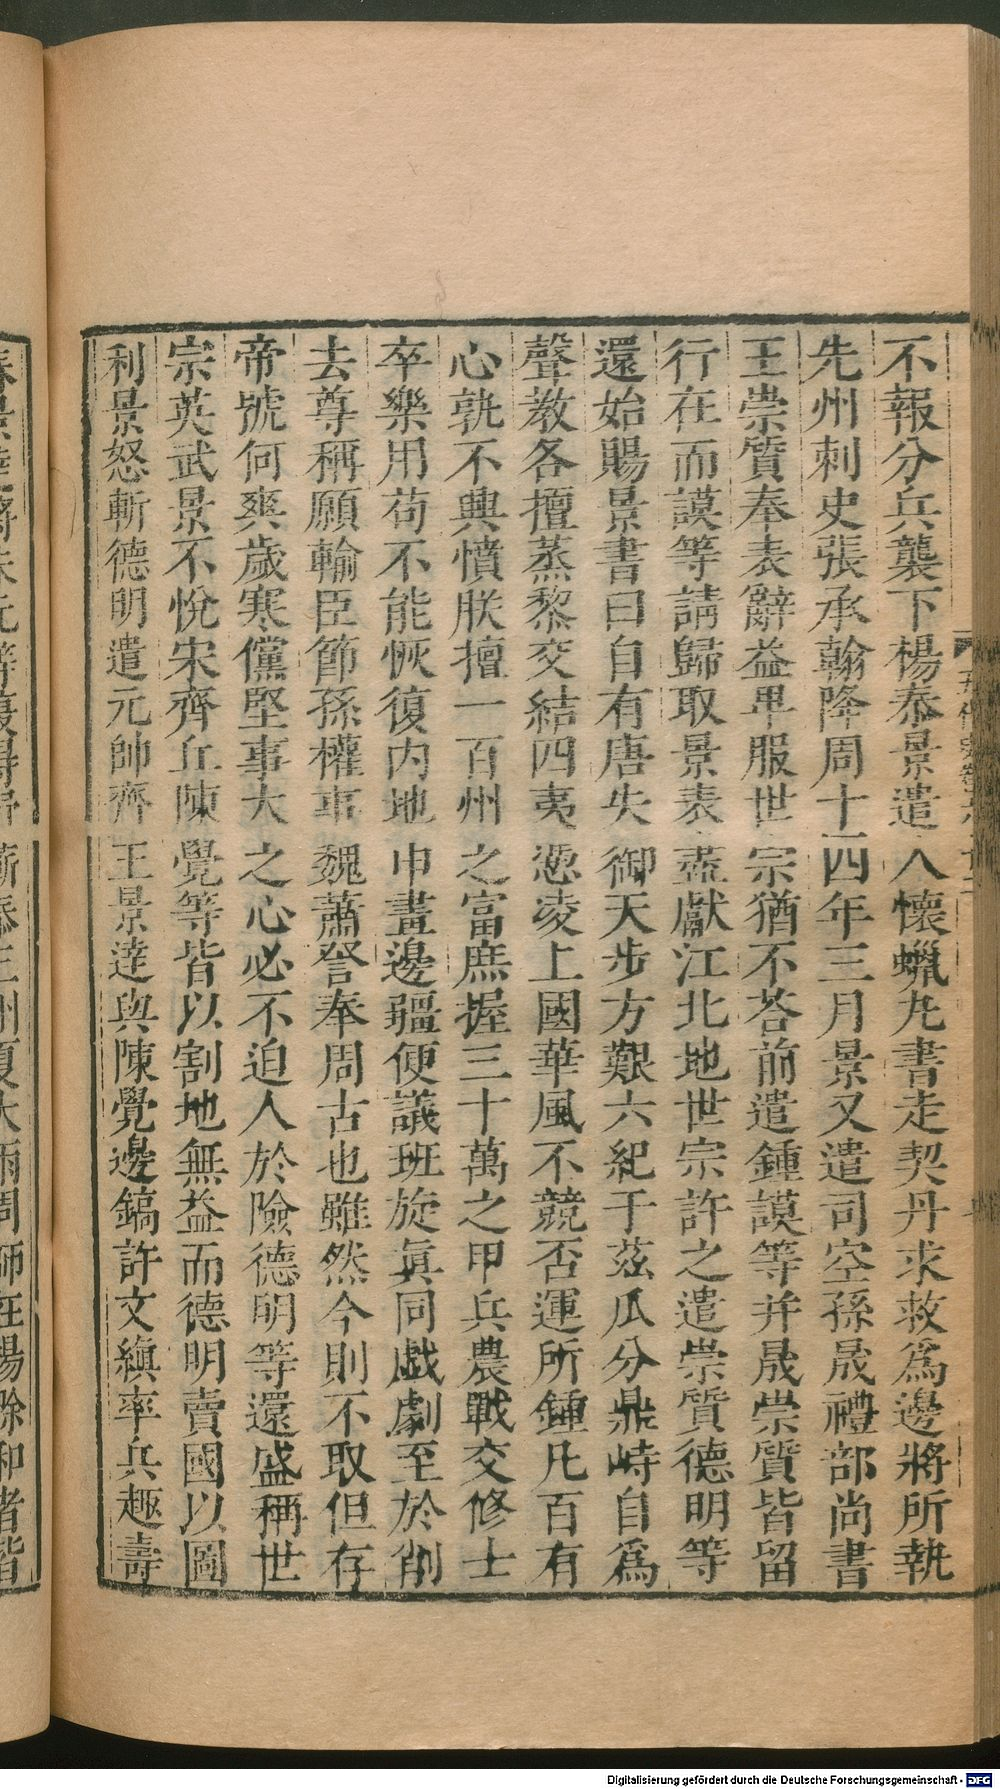 不報分兵襲下楊泰景遣人懷蠟丸書走契丹求救爲邊將所執
先州刺史張承翰降周十四年三月景又遣司空孫晟禮部尚書
王崇質奉表辭益𤰞服世宗猶不荅前遣鍾謨等并晟崇質皆留
行在而謨等請歸取景表盡獻江北地世宗許之遣崇質德明等
還始賜景書曰自有唐失御天步方艱六紀于茲瓜分鼎峙自爲
聲教各擅蒸黎交結四夷憑凌上國華風不競否運所鍾凡百有
心孰不興憤朕擅一百州之富庶握三十萬之甲兵農戰交修士
卒樂用苟不能恢復内地申畫邊疆便議班旋眞同戯劇至於削
去尊稱願輸臣節孫權事魏蕭詧奉周古也雖然今則不取但存
帝號何爽歲寒儻堅事大之心必不迫人於險德明等還盛稱世
宗英武景不悅宋齊丘陳覺等皆以割地無益而德明賣國以圖
利景怒斬德明遣元帥齊王景達與陳覺邊鎬許文縝率兵趣壽